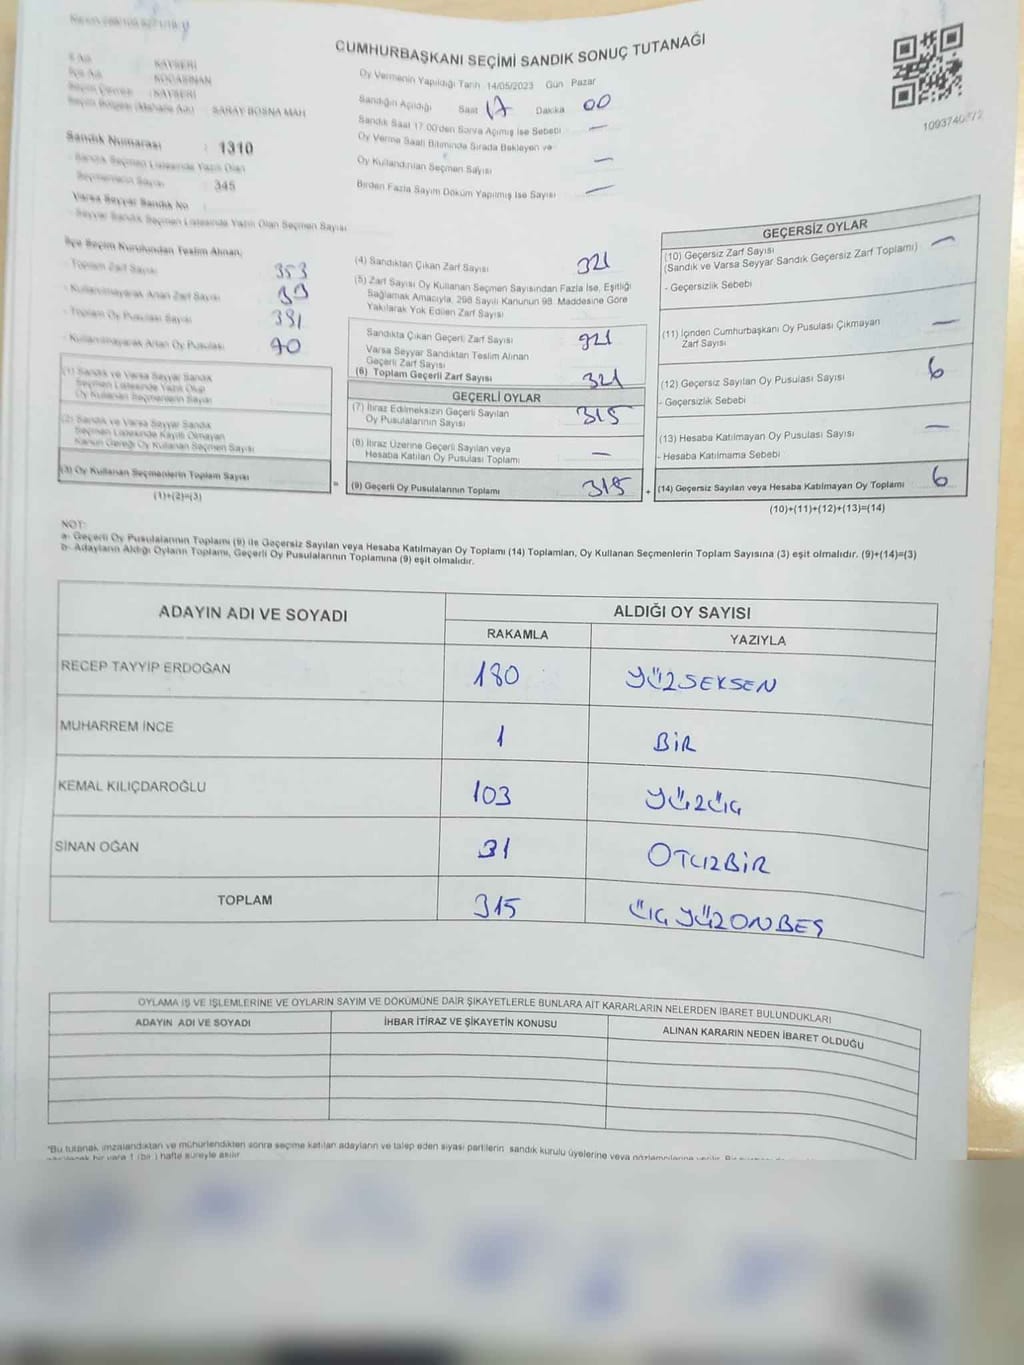 CUMHURBAŞKANI SEÇİMİ SANDIK SONUÇ TUTANAĞI
KAYSERİ
KOCASİNAN
Seçim Çevresi : KAYSERİ
Seçim Bölgesi (Mahalle Adı) : SARAY BOSNA MAH
Sandık Numarası : 1310
- Sandık Seçmen Listesinde Yazılı Olan
Seçmenlerin Sayısı : 345
Varsa Seyyar Sandık No :
- Seyyar Sandık Seçmen Listesinde Yazılı Olan Seçmen Sayısı
Oy Vermenin Yapıldığı Tarih 14/05/2023 Gün Pazar
Sandığın Açıldığı Saat 17 Dakika 00
Sandık Saat 17:00'den Sonra Açılmış İse Sebebi —
Oy Verme Saati Bitiminde Sırada Bekleyen ve
Oy Kullandırılan Seçmen Sayısı —
Birden Fazla Sayım Döküm Yapılmış İse Sayısı —
İlçe Seçim Kurulundan Teslim Alınan;
- Toplam Zarf Sayısı 353
- Kullanılmayarak Artan Zarf Sayısı
- Toplam Oy Pusulası Sayısı
- Kullanılmayarak Artan Oy Pusulası
(1) Sandık ve Varsa Seyyar Sandık
Seçmen Listesinde Yazılı Olup
Oy Kullanan Seçmenlerin Sayısı
(2) Sandık ve Varsa Seyyar Sandık
Seçmen Listesinde Kayıtlı Olmayan
Kanun Gereği Oy Kullanan Seçmen Sayısı
(3) Oy Kullanan Seçmenlerin Toplam Sayısı
(1)+(2)=(3)
(4) Sandıktan Çıkan Zarf Sayısı 321
(5) Zarf Sayısı Oy Kullanan Seçmen Sayısından Fazla İse, Eşitliği
Sağlamak Amacıyla, 298 Sayılı Kanunun 98. Maddesine Göre
Yakılarak Yok Edilen Zarf Sayısı
Sandıkta Çıkan Geçerli Zarf Sayısı 321
Varsa Seyyar Sandıktan Teslim Alınan
Geçerli Zarf Sayısı
(6) Toplam Geçerli Zarf Sayısı 321
GEÇERLİ OYLAR
(7) İtiraz Edilmeksizin Geçerli Sayılan
Oy Pusulalarının Sayısı 315
(8) İtiraz Üzerine Geçerli Sayılan veya
Hesaba Katılan Oy Pusulası Toplamı —
= (9) Geçerli Oy Pusulalarının Toplamı 315 +
GEÇERSİZ OYLAR
(10) Geçersiz Zarf Sayısı —
(Sandık ve Varsa Seyyar Sandık Geçersiz Zarf Toplamı)
- Geçersizlik Sebebi
(11) İçinden Cumhurbaşkanı Oy Pusulası Çıkmayan
Zarf Sayısı —
(12) Geçersiz Sayılan Oy Pusulası Sayısı 6
- Geçersizlik Sebebi
(13) Hesaba Katılmayan Oy Pusulası Sayısı —
- Hesaba Katılmama Sebebi
(14) Geçersiz Sayılan veya Hesaba Katılmayan Oy Toplamı 6
(10)+(11)+(12)+(13)=(14)
NOT:
a- Geçerli Oy Pusulalarının Toplamı (9) ile Geçersiz Sayılan veya Hesaba Katılmayan Oy Toplamı (14) Toplamları, Oy Kullanan Seçmenlerin Toplam Sayısına (3) eşit olmalıdır. (9)+(14)=(3)
b- Adayların Aldığı Oyların Toplamı, Geçerli Oy Pusulalarının Toplamına (9) eşit olmalıdır.
ADAYIN ADI VE SOYADI ALDIĞI OY SAYISI
RAKAMLA YAZIYLA
RECEP TAYYİP ERDOĞAN 180 YÜZSEKSEN
MUHARREM İNCE 1 BİR
KEMAL KILIÇDAROĞLU 103 YÜZÜÇ
SİNAN OĞAN 31 OTUZBİR
TOPLAM 315 ÜÇ YÜZ ONBEŞ
OYLAMA İŞ VE İŞLEMLERİNE VE OYLARIN SAYIM VE DÖKÜMÜNE DAİR ŞİKAYETLERLE BUNLARA AİT KARARLARIN NELERDEN İBARET BULUNDUKLARI
ADAYIN ADI VE SOYADI İHBAR İTİRAZ VE ŞİKAYETİN KONUSU ALINAN KARARIN NEDEN İBARET OLDUĞU
*Bu tutanak imzalandıktan ve mühürlendikten sonra seçime katılan adayların ve talep eden siyasi partilerin sandık kurulu üyelerine veya gözlemcilerine verilir.